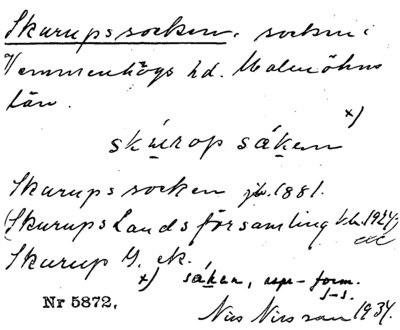 Skurups socken, socken i
Vemmenhögs hd. Malmöhus
län.
x)
skúrop sákan
Skurups socken jb. 1881.
(Skurups Landsförsamling 1924)
Skurup G. ek.
x) sákan, upp- form.
Nr 5872.
Nils Nilsson 1934.